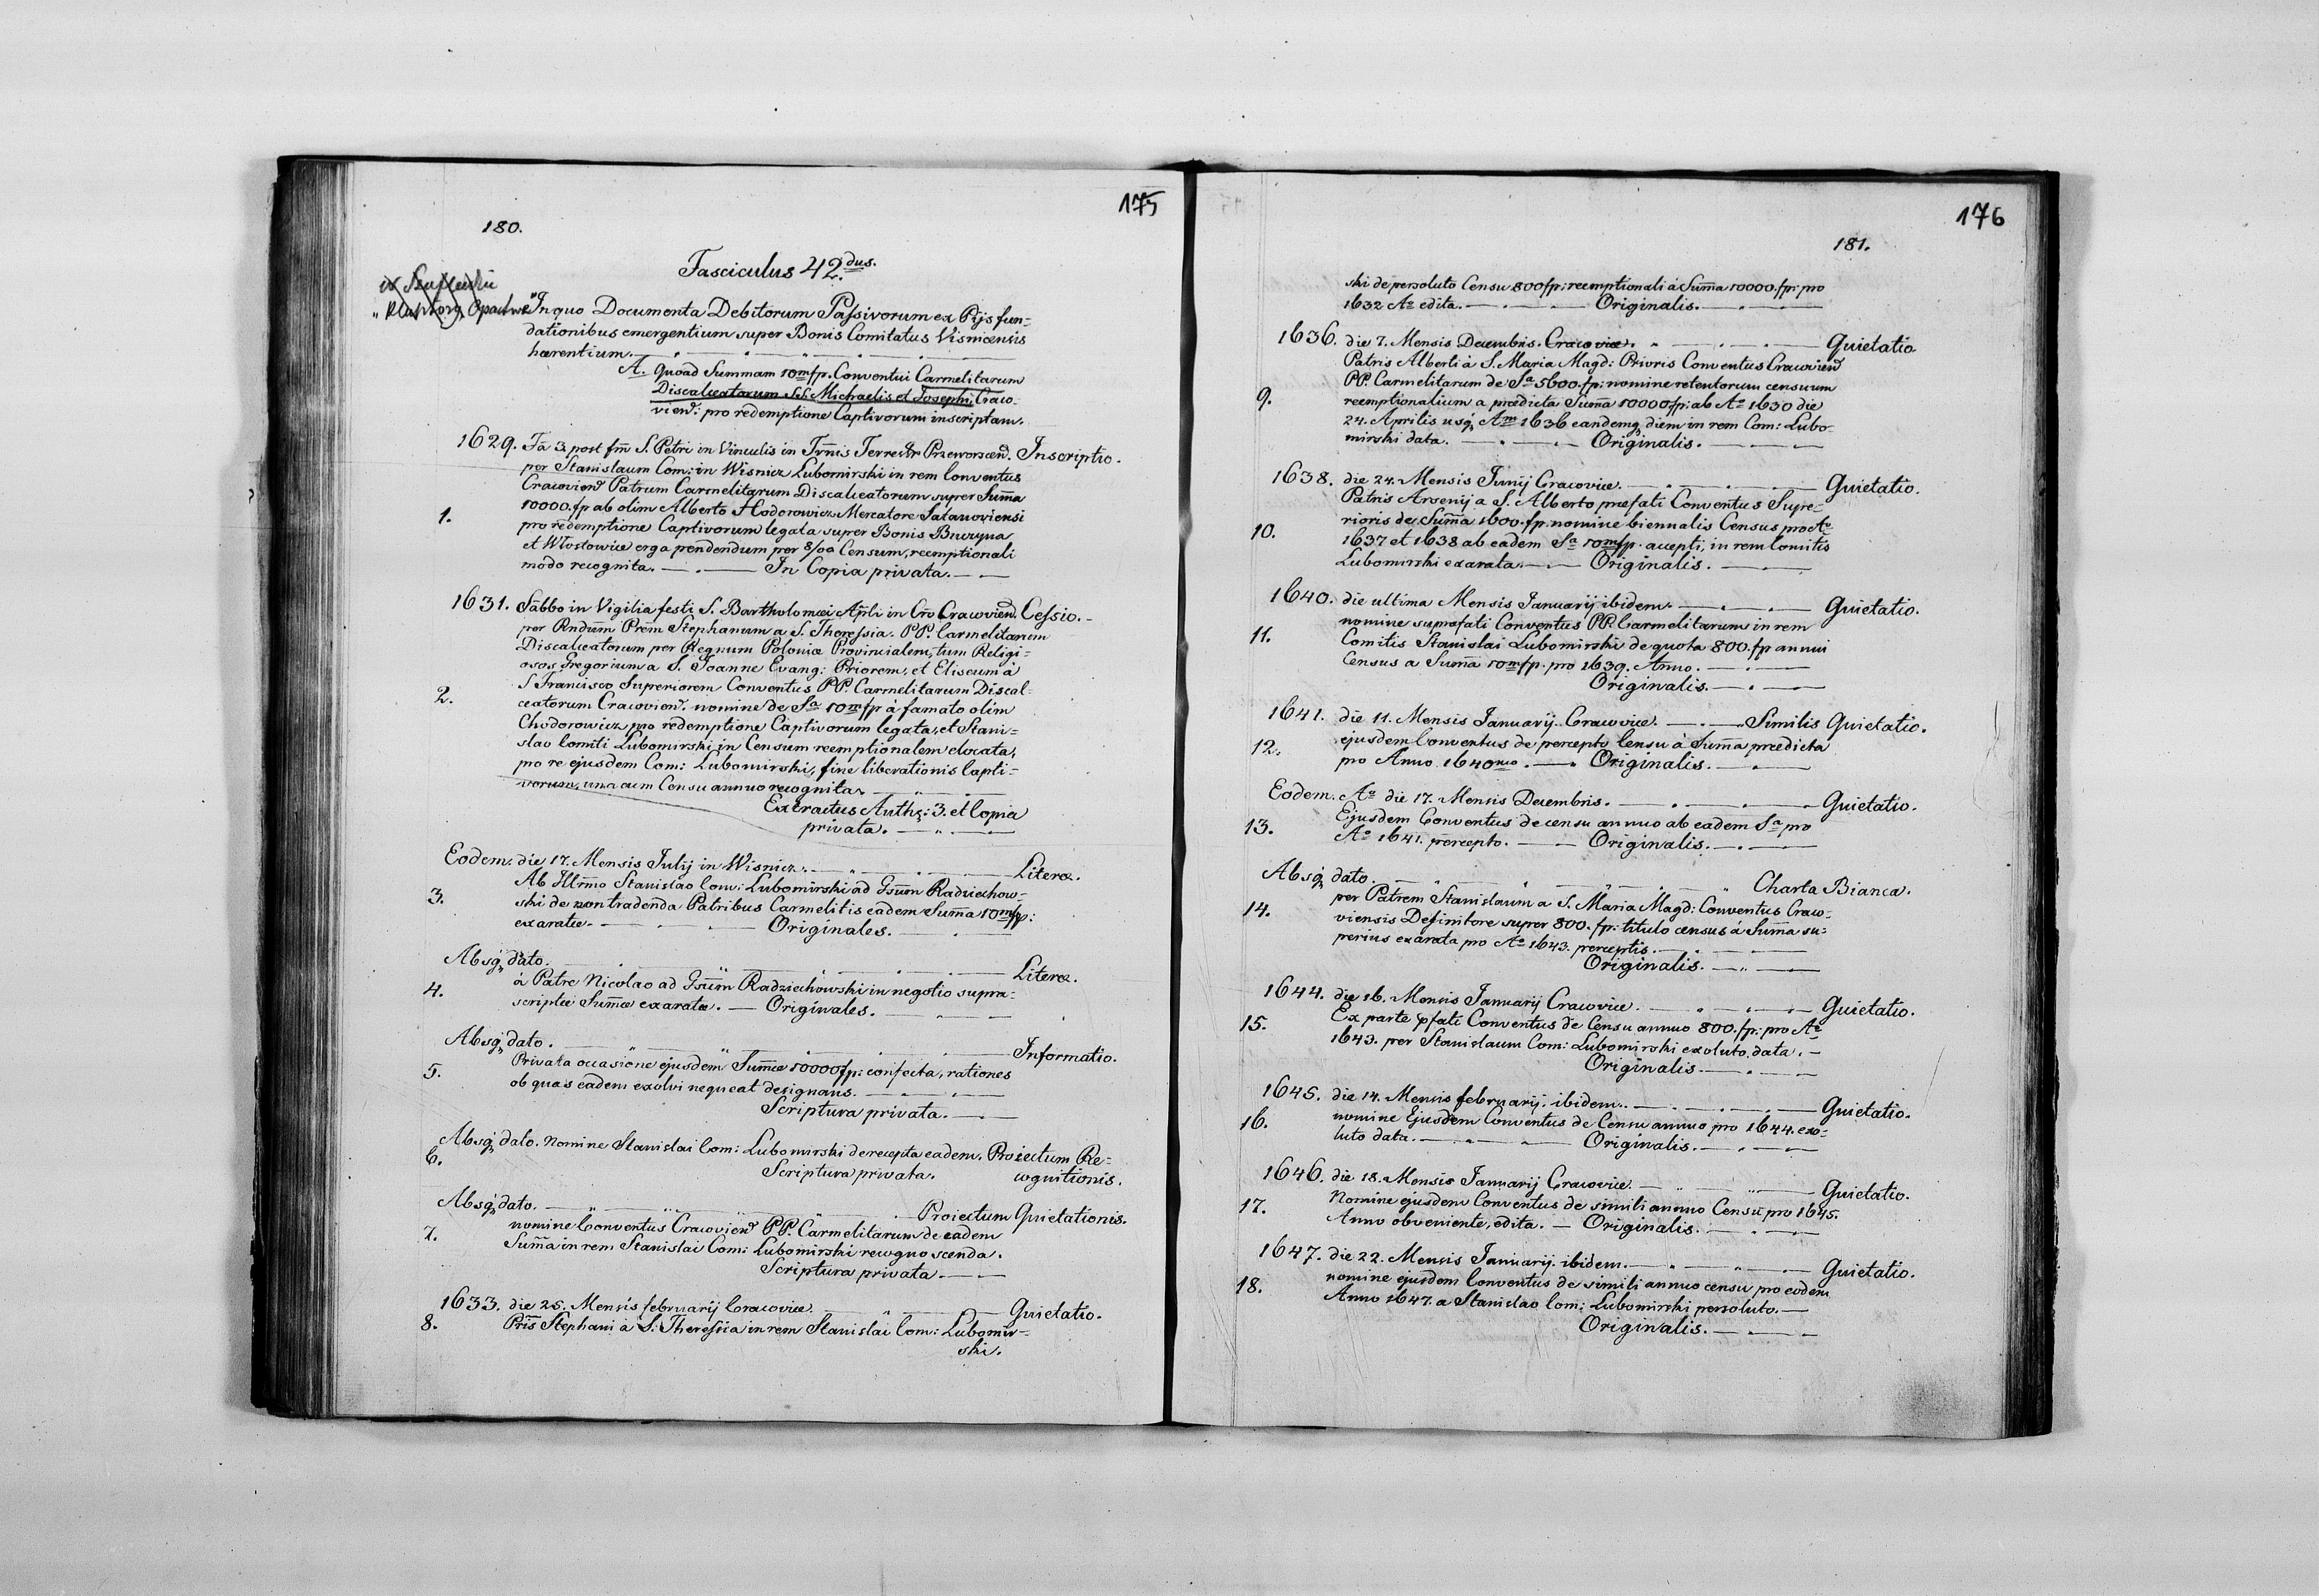 175
180.
Fasciculus 42.dus.
"In quo Documenta Debitorum Passivorum ex Pijs fun=
dationibus emergentium super Bonis Comitatus Visnicensis
hærentium.
A. Quoad Summam 10m fp. Conventui Carmelitarum
Discalceatorum S.S. Michaelis et Josephi Craco-
vien: pro redemptione Captivorum inscriptam.
1629. Fa 3 post fm S. Petri in Vinculis in Trnis Terrestr Prœworscen. Inscriptio.
per Stanislaum Com: in Wisnicz Lubomirski in rem Conventus
Cracovien Patrum Carmelitarum Discalceatorum super Suma
1. 10000. fp ab olim Alberto Hodorowicz Mercatore Satanoviensi
pro redemptione Captivorum legata super Bonis Buczyna
et Włostowice erga pendendum per 8/00 Censum, reemptionali
modo recognita. In Copia privata.
1631. Sabbo in Vigilia festi S. Bartholomæi Apli in Cro Cracovien. Cessio.
per Rndum Prem Stephanum a S. Theressia. PP. Carmelitarum
Discalceatorum per Regnum Poloniæ Provincialem, tum Religi=
osos Gregorium a S. Joanne Evang: Priorem, et Eliseum à
S Francisco Superiorem Conventus PP. Carmelitarum Discal=
2. ceatorum Cracovien. nomine de Sa 10m fp à famato olim
Chodorowicz, pro redemptione Captivorum legata, et Stani=
slao Comiti Lubomirski in Censum reemptionalem elocata,
pro re ejusdem Com: Lubomirski, fine liberationis Capti=
vorum, una cum Censu annuo recognita.
Extractus Auth: 3. et Copia
privata.
Eodem. die 17. Mensis Julij in Wisnicz. Literæ.
Ab Illrmo Stanislao Com: Lubomirski ad Gsum Radziechow=
3. ski de non tradenda Patribus Carmelitis eadem Suma 10m fp:
exaratæ. Originales.
Absq dato. Literæ.
à Patre Nicolao ad Gsum Radziechowski in negotio supra=
4. scriptæ Sumæ exaratæ. Originales.
Absq dato. Informatio.
Privata occasione ejusdem Sumæ 10000 fp: confecta, rationes
5. ob quas eadem exolvi nequeat designans.
Scriptura privata.
Absq dato. Nomine Stanislai Com: Lubomirski de recepta eadem. Proiectum Re=
6. Scriptura privata. cognitionis.
Absq dato. Proiectum Quietationis.
nomine Conventus Cracovien PP. Carmelitarum de eadem
7. Suma in rem Stanislai Com: Lubomirski recognoscenda.
Scriptura privata
1633. die 25. Mensis februarij Cracoviæ. Quietatio.
8. Pris Stephani à S: Theressia in rem Stanislai Com: Lubomir=
ski.
176
181.
ski de persoluto Censu 800 fp: reemptionali à Suma 10000. fp: pro
1632 Ao edita. Originalis.
1636. die 7. Mensis Decembris. Cracoviæ. Quietatio
Patris Alberti à S. Maria Magd: Prioris Conventus Cracovien
PP. Carmelitarum de Sa 5600. fp: nomine retentorum censuum
9. reemptionalium a prædicta Suma 10000 fp: ab Ao 1630 die
24. Aprilis usq Am 1636 eandemq diem in rem Com: Lubo-
mirski data. Originalis.
1638. die 24. Mensis Junij Cracoviæ. Quietatio.
Patris Arsenij a S. Alberto præfati Conventus Supe=
rioris de Suma 1600. fp. nomine biennalis Census pro Ao
10. 1637 et 1638 ab eadem Sa 10m fp. accepti, in rem Comitis
Lubomirski exarata. Originalis.
1640. die ultima Mensis Januarij ibidem. Quietatio.
nomine suprafati Conventus PP. Carmelitarum in rem
11. Comitis Stanislai Lubomirski de quota 800. fp annui
Census a Suma 10m fp. pro 1639. Anno.
Originalis.
1641. die 11. Mensis Januarij. Cracoviæ. Similis Quietatio.
ejusdem Conventus de percepto Censu à Suma prædicta
12. pro Anno 1640mo. Originalis.
Eodem. Ao die 17. Mensis Decembris. Quietatio.
Ejusdem Conventus de censu annuo ab eadem Sa pro
13. Ao 1641. percepto. Originalis.
Absq dato. Charta Bianca.
per Patrem Stanislaum a S. Maria Magd: Conventus Craco-
14. viensis Definitore super 800. fp: titulo census à Suma su=
perius exarata pro Ao 1643. perceptis.
Originalis.
1644. die 16. Mensis Januarij Cracoviæ. Quietatio.
Ex parte pfati Conventus de Censu annuo 800. fp: pro Ao
15. 1643. per Stanislaum Com: Lubomirski exoluto, data.
Originalis
1645. die 14. Mensis februarij. ibidem. Quietatio.
nomine Ejusdem Conventus de Censu annuo pro 1644. exo=
16. luto data. Originalis.
1646. die 18. Mensis Januarij Cracoviæ. Quietatio.
Nomine ejusdem Conventus de simili annuo Censu pro 1645.
17. Anno obveniente, edita. Originalis.
1647. die 22. Mensis Januarij. ibidem. Quietatio.
nomine ejusdem Conventus de simili annuo censu pro eodem
18. Anno 1647. a Stanislao Com: Lubomirski persoluto.
Originalis.